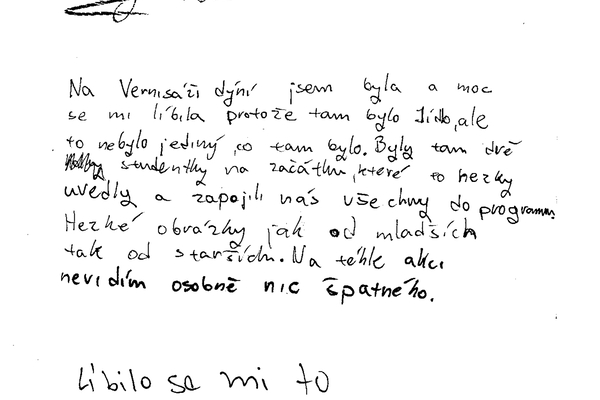 Na Vernisáži dýní jsem byla a moc
se mi líbila protože tam bylo Jídlo, ale
to nebylo jediný, co tam bylo. Byly tam dvě
studentky na začátku, které to hezky
uvedly a zapojili nás všechny do programu.
Hezké obrázky jak od mladších
tak od starších. Na téhle akci
nevidím osobně nic špatného.
Líbilo se mi to